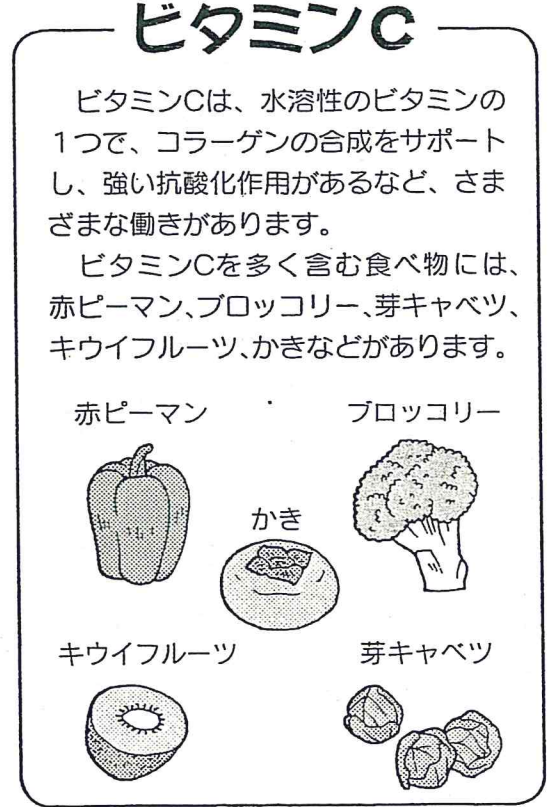 ビタミンC
ビタミンCは、水溶性のビタミンの
1つで、コラーゲンの合成をサポート
し、強い抗酸化作用があるなど、さま
ざまな働きがあります。
ビタミンCを多く含む食べ物には、
赤ピーマン、ブロッコリー、芽キャベツ、
キウイフルーツ、かきなどがあります。
赤ピーマン
ブロッコリー
かき
キウイフルーツ
芽キャベツ